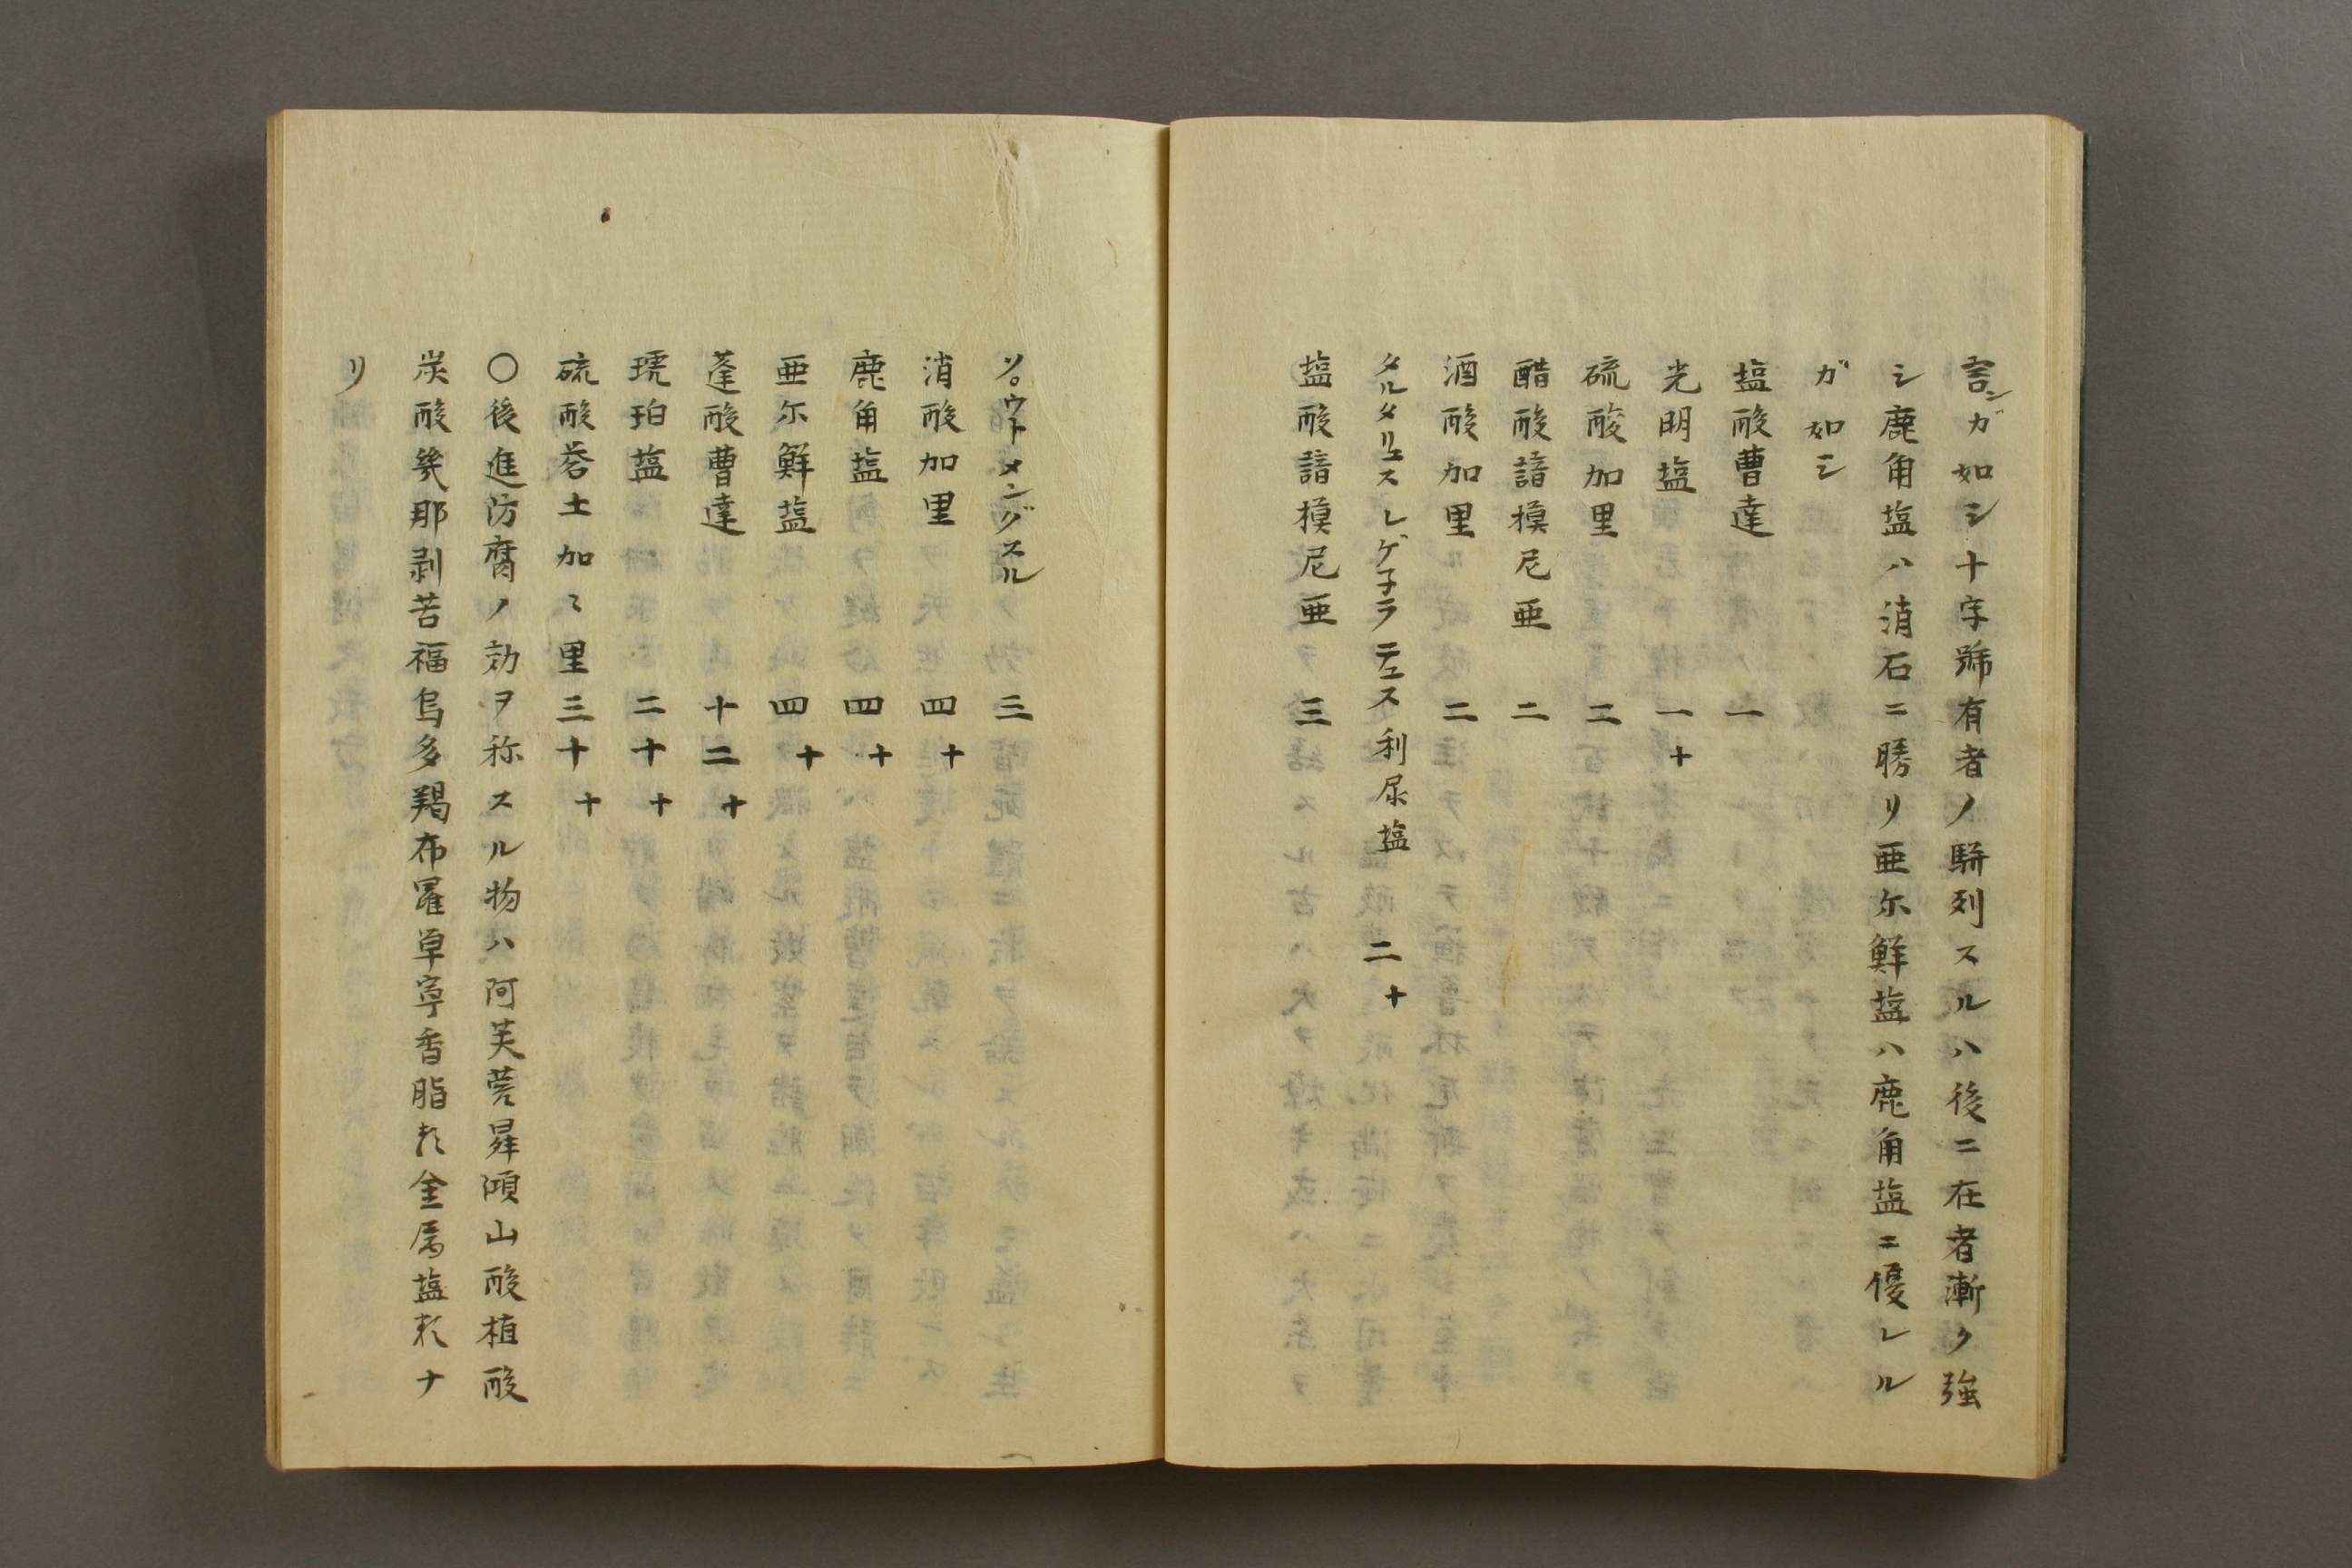 言ンガ如シ十字號有者ノ駢列スルハ後ニ在者漸ク強
シ鹿角塩ハ消石ニ勝リ亜尓鮮塩ハ鹿角塩ニ優レル
ガ如シ
塩酸曹達 一
光明塩 一十
硫酸加里 二
醋酸諳模尼亜 二
酒酸加里 二
タルタリュスレゲ子ラテュス利尿塩 二十
塩酸諳模尼亜 三
ソ。ウトメングスル 三
消酸加里 四十
鹿角塩 四十
亜尓鮮塩 四十
蓬酸曹達 十二十
琥珀塩 二十十
硫酸礬土加々里 三十十
〇後進防腐ノ効ヲ称スル物ハ阿芙蓉舜㴿山酸植酸
炭酸幾那剥苦福烏多羯布羅単寧香脂類金属塩類ナ
リ